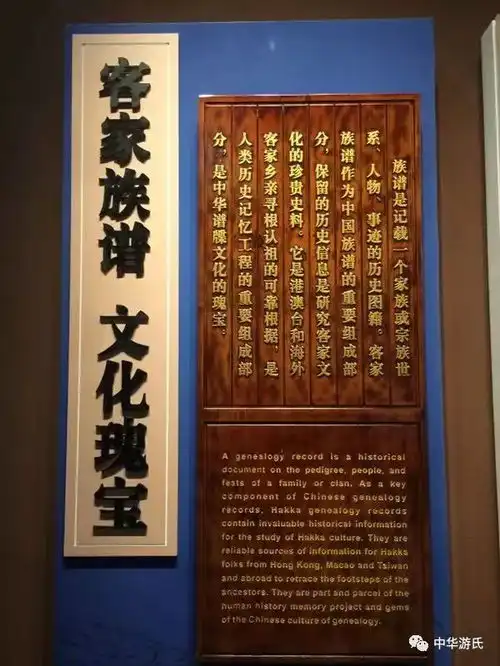 客家族谱 文化瑰宝
族谱是记载一个家族或宗族世
系、人物、事迹的历史图籍。客家
族谱作为中国族谱的重要组成部
分，保留的历史信息是研究客家文
化的珍贵史料。它是港澳台和海外
客家乡亲寻根认祖的可靠根据，是
人类历史记忆工程的重要组成部
分，是中华谱牒文化的瑰宝。
A genealogy record is a historical
document on the pedigree, people, and
fests of a family or clan. As a key
component of Chinese genealogy
records, Hakka genealogy records
contain invaluable historical information
for the study of Hakka culture. They are
reliable sources of information for Hakka
folks from Hong Kong, Macao and Taiwan
and abroad to retrace the footsteps of the
ancestors. They are part and parcel of the
human history memory project and gems
of the Chinese culture of genealogy.
中华游氏